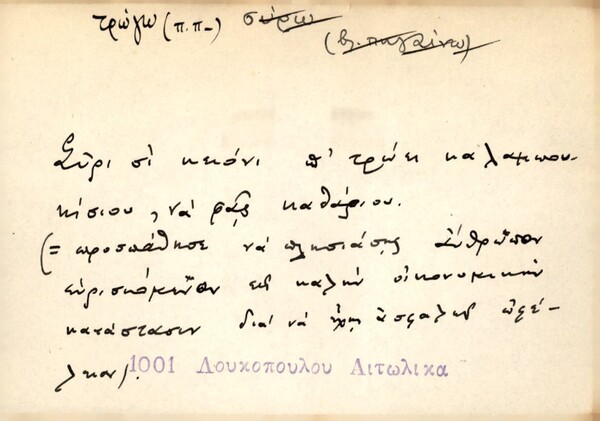 τρώγω (π.π-) σύρω
(βλ. πηγαίνω)
Σῦρι σὶ κικόνι π' τρώει καλαμπου-
κίσιου, νὰ φᾷς καθάριου.
(= προσπάθησε νὰ πλησιάσῃς ἄνθρωπον
εὑρισκόμενον εἰς καλὴν οἰκονομικὴν
κατάστασιν διὰ νὰ ἔχῃς ἀσφαλῆ ὠφέ-
λειαν).
1001 Λουκοπουλου Αιτωλικα